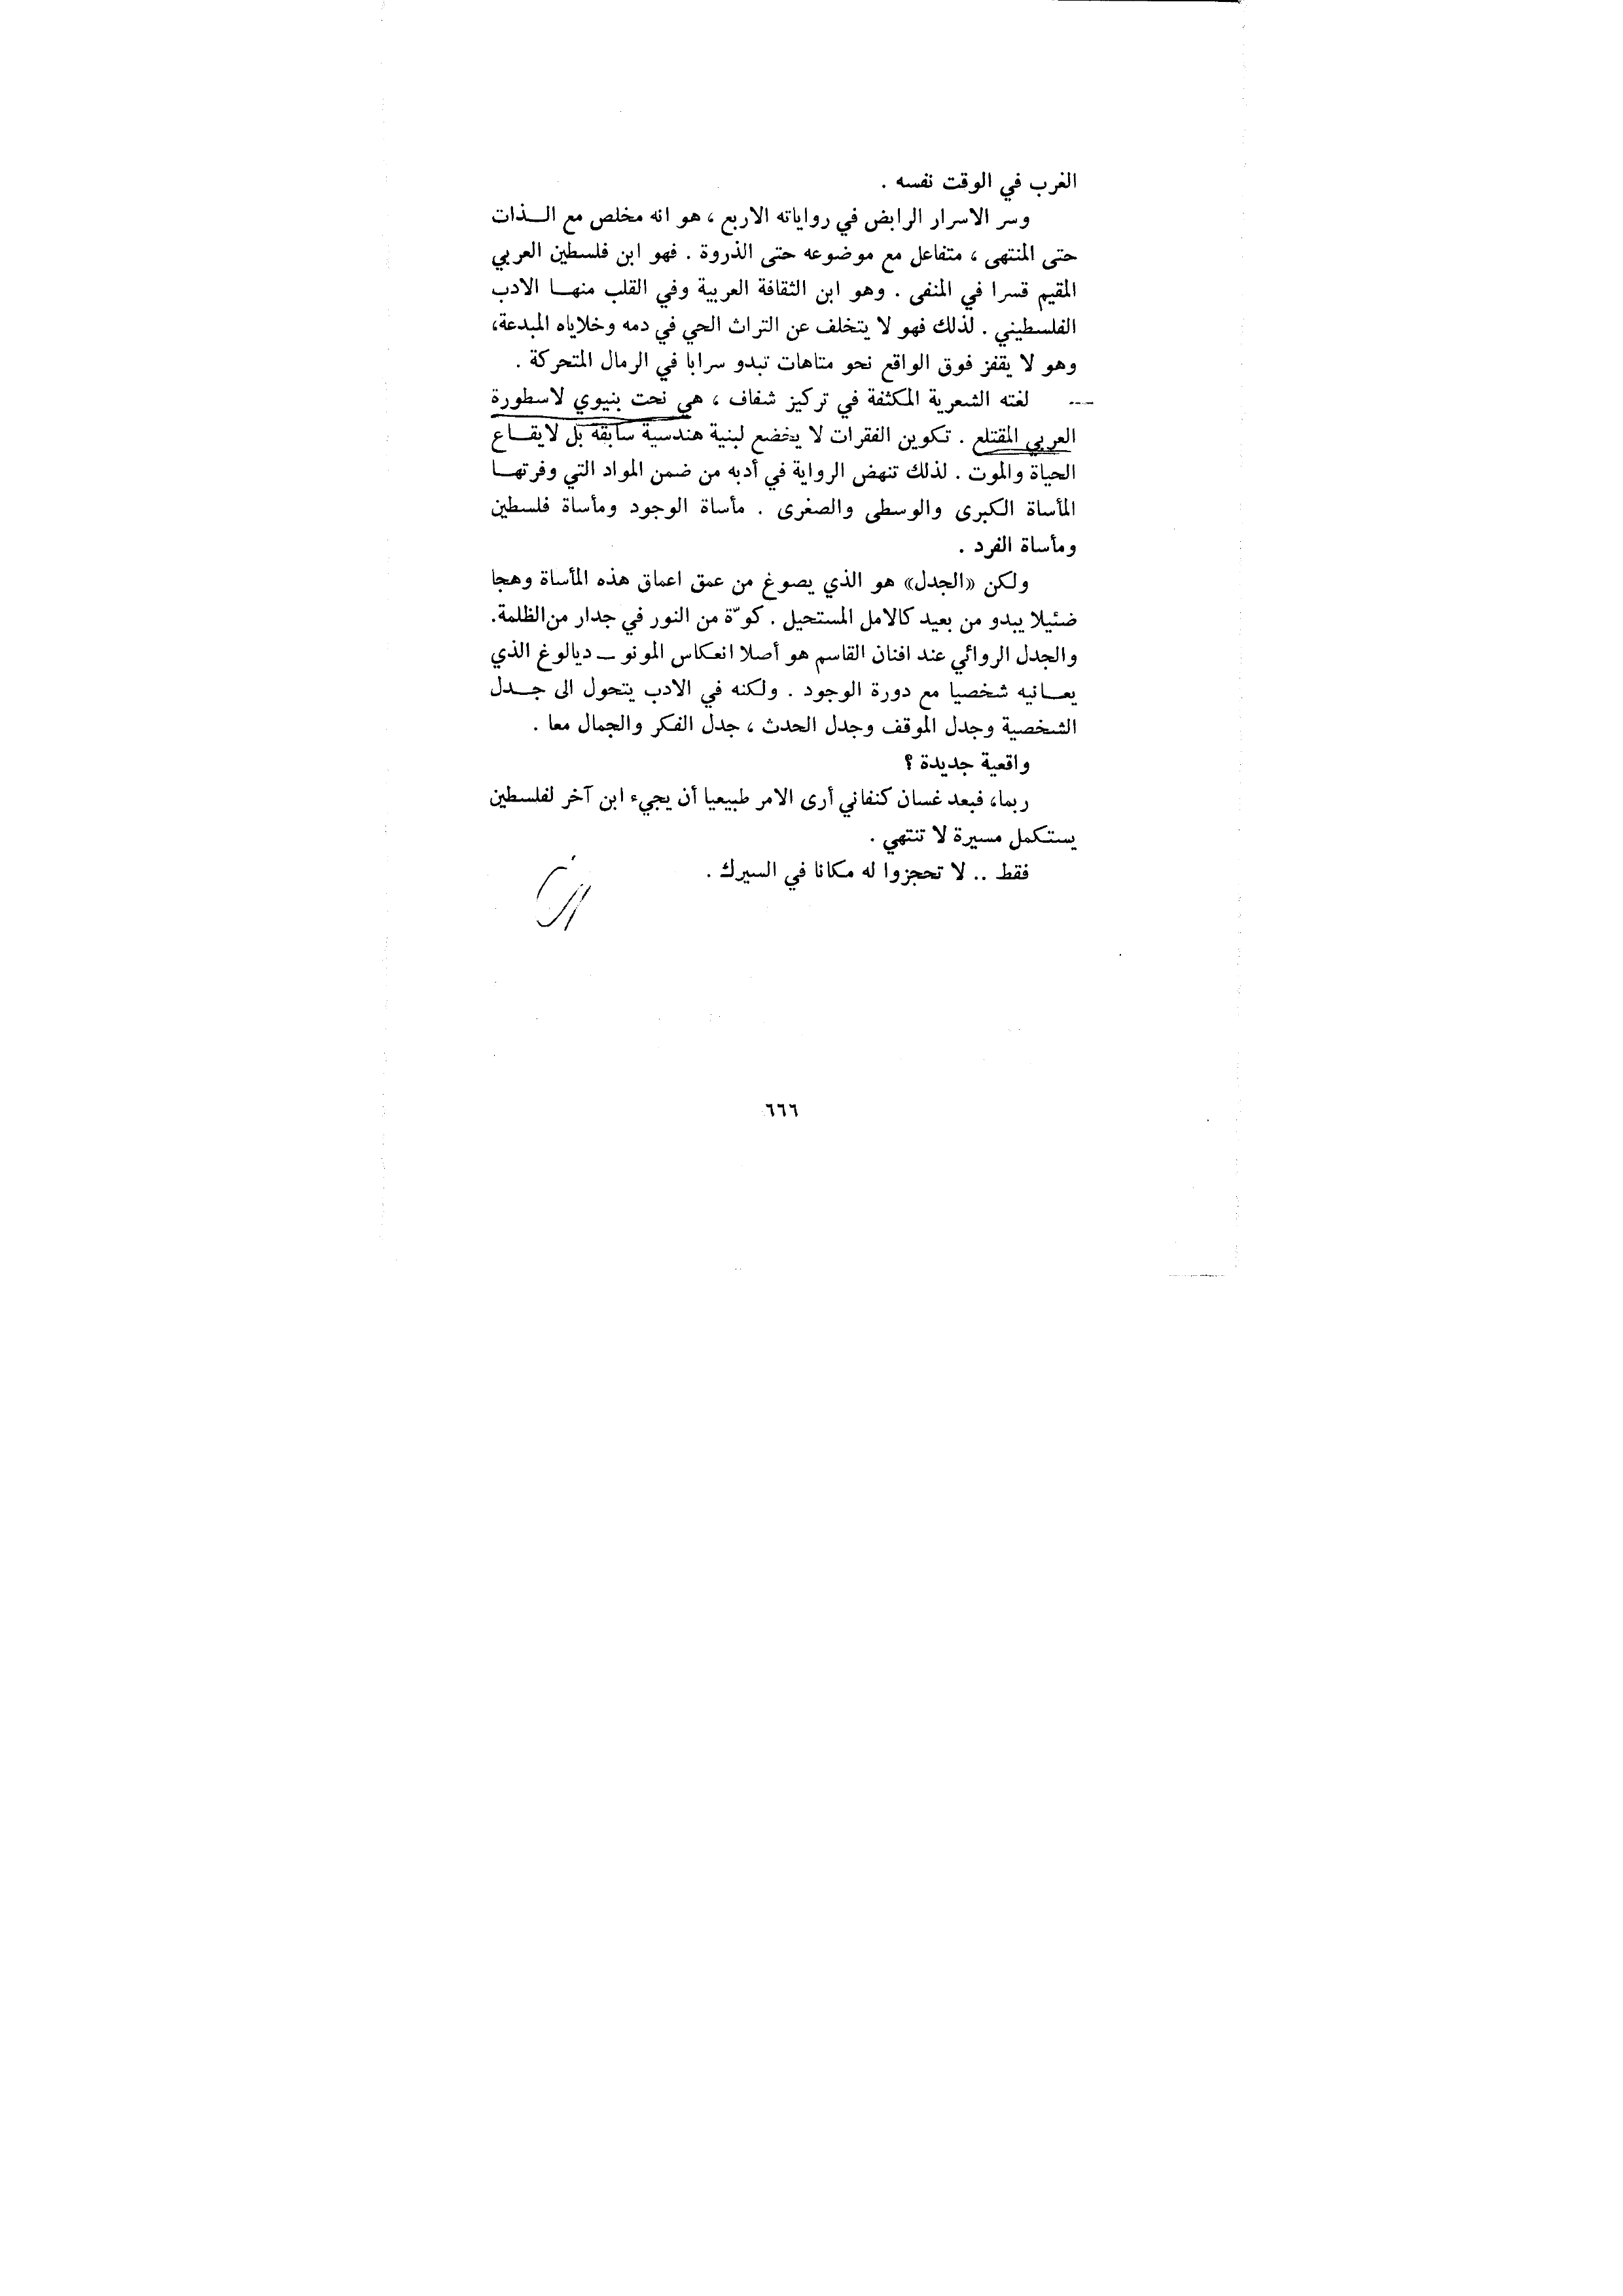 الغرب في الوقت نفسه .
وسر الاسرار الرابض في رواياته الاربع ، هو انه مخلص مع الــذات
حتى المنتهى ، متفاعل مع موضوعه حتى الذروة . فهو ابن فلسطين العربي
المقيم قسرا في المنفى . وهو ابن الثقافة العربية وفي القلب منهــا الادب
الفلسطيني . لذلك فهو لا يتخلف عن التراث الحي في دمه وخلاياه المبدعة،
وهو لا يقفز فوق الواقع نحو متاهات تبدو سرابا في الرمال المتحركة .
لغته الشعرية المكثفة في تركيز شفاف ، هي نحت بنيوي لاسطورة
العربي المقتلع . تكوين الفقرات لا يخضع لبنية هندسية سابقة بل لايقــاع
الحياة والموت . لذلك تنهض الرواية في أدبه من ضمن المواد التي وفرتهــا
المأساة الكبرى والوسطى والصغرى . مأساة الوجود ومأساة فلسطين
ومأساة الفرد .
ولكن «الجدل» هو الذي يصوغ من عمق اعماق هذه المأساة وهجا
ضئيلا يبدو من بعيد كالامل المستحيل . كوّة من النور في جدار من الظلمة.
والجدل الروائي عند افنان القاسم هو أصلا انعكاس المونو ــ ديالوغ الذي
يعــانيه شخصيا مع دورة الوجود . ولكنه في الادب يتحول الى جــدل
الشخصية وجدل الموقف وجدل الحدث ، جدل الفكر والجمال معا .
واقعية جديدة ؟
ربما، فبعد غسان كنفاني أرى الامر طبيعيا أن يجيء ابن آخر لفلسطين
يستكمل مسيرة لا تنتهي .
فقط .. لا تحجزوا له مكانا في السيرك .
٦٦٦